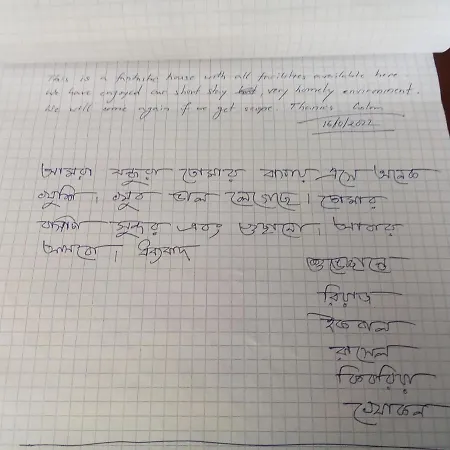 This is a fantastic house with all facilities available here
we have enjoyed our short stay very homely environment.
We will come again if we get scope. Thanks
আমরা বন্ধুরা তোমার বাসায় এসে অনেক
খুশি। খুব ভাল লেগেছে। তোমার
বাসাটা সুন্দর এবং গুছানো। আবার
আসবো। ধন্যবাদ
শুভেচ্ছান্তে
রিয়াজ
ইকবাল
রাসেল
কিবরিয়া
খোকন